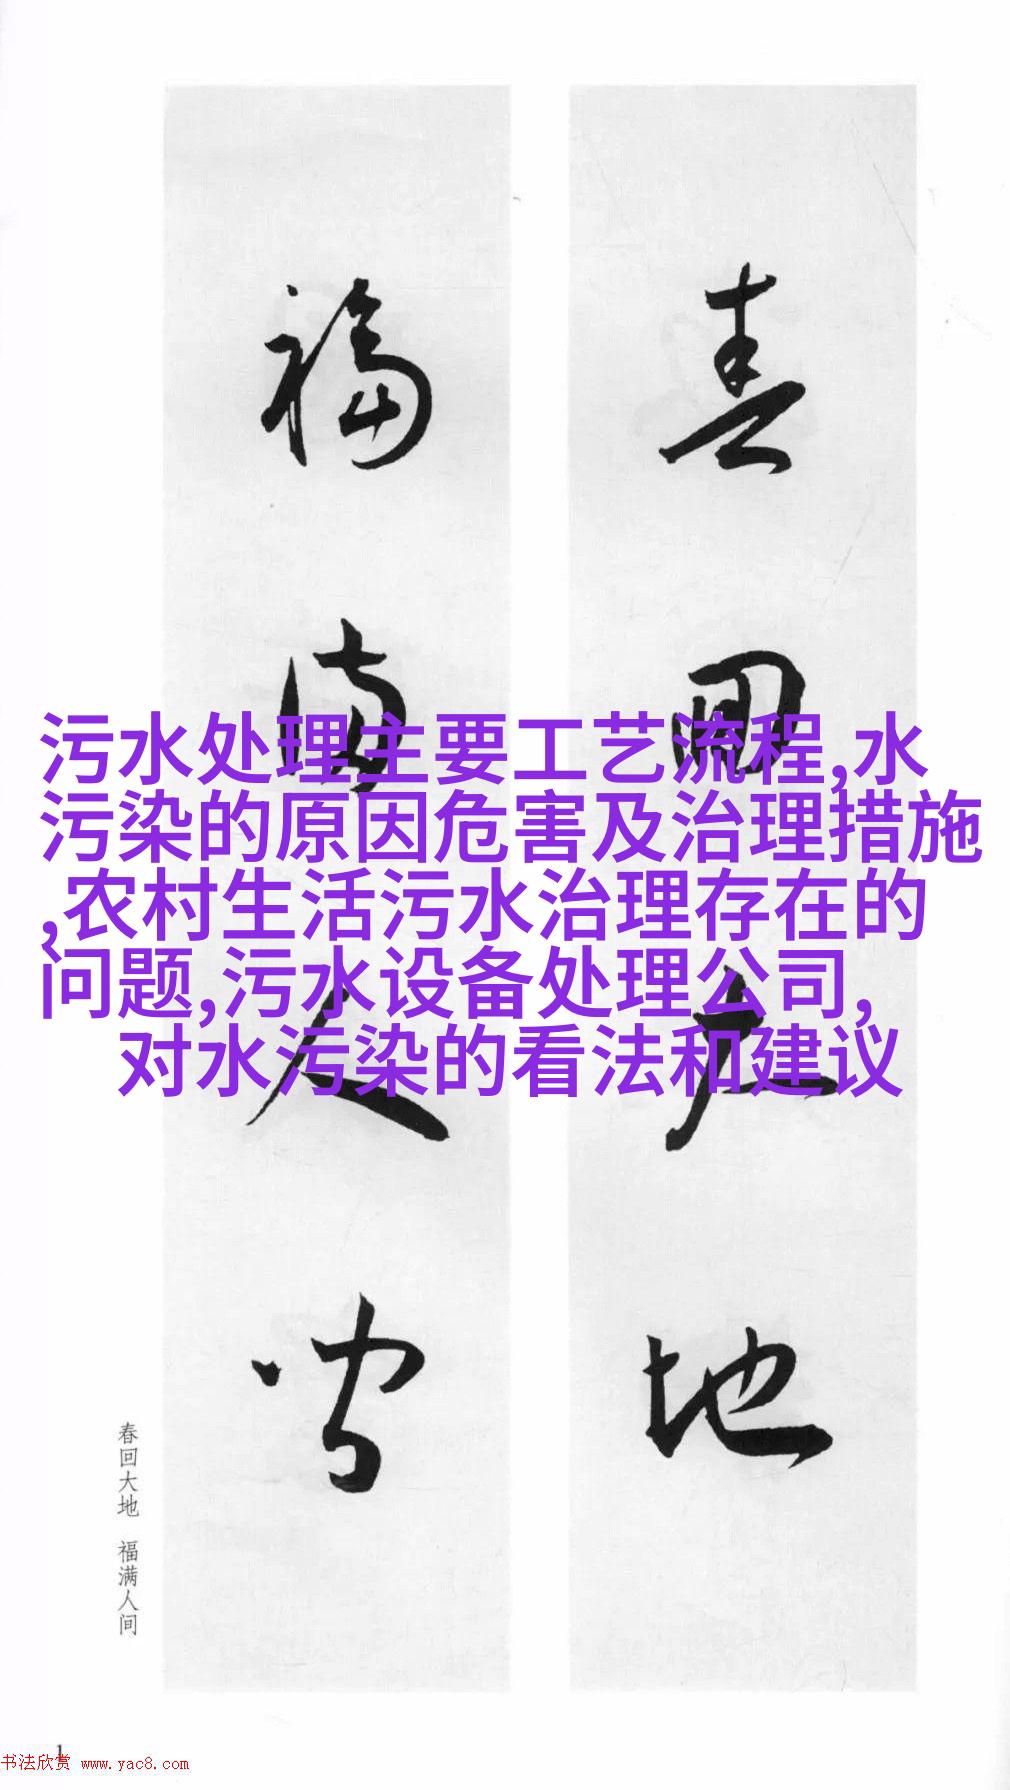 春回大地
福满人间
污水处理主要工艺流程,水
污染的原因危害及治理措施
,农村生活污水治理存在的
问题,污水设备处理公司,
对水污染的看法和建议
春回大地 福满人间
1
书法欣赏 www.yac8.com